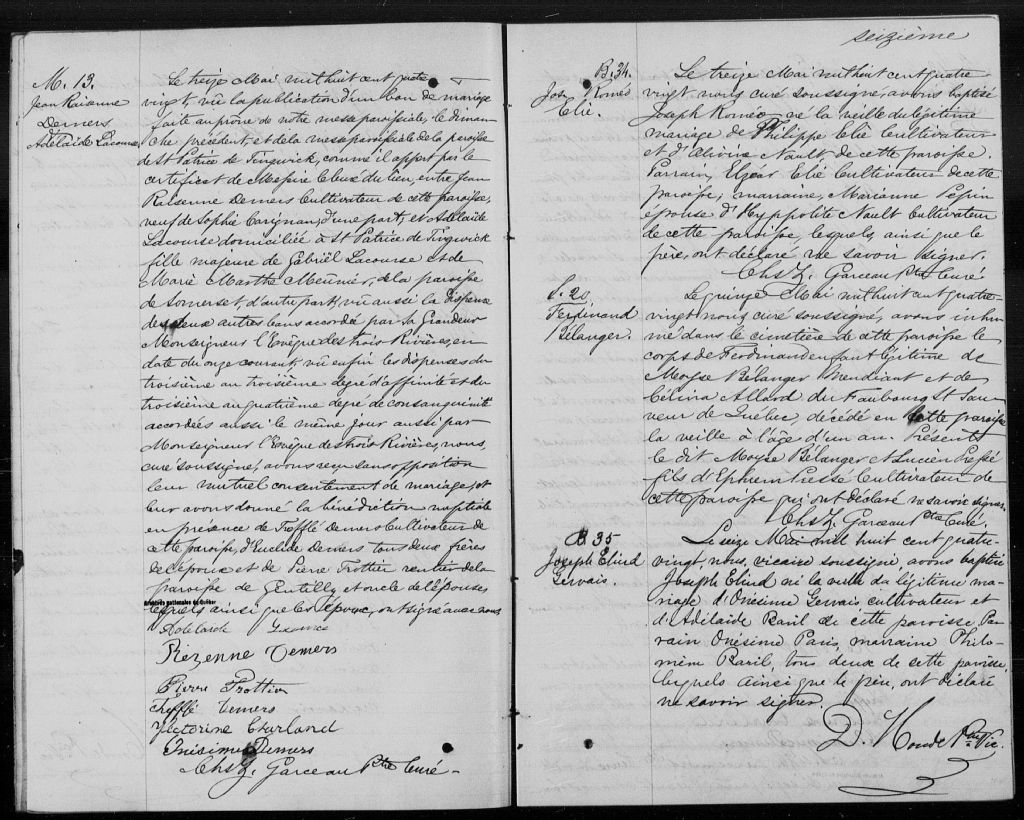 M. 13.
Jean Ruisenne
Demers
Adélaide Lacourse
Le treize Mai mil huit cent quatre
vingt, vu la publication d'un ban de mariage
faite au prône de notre messe paroissiale, le diman
che précédent, et de la messe paroissiale de la paroisse
de St Patrice de Tingwick, comme il appert par le
certificat de Messire Leleux du lieu, entre Jean
Ruisenne Demers Cultivateur de cette paroisse,
veuf de Sophie Carignan, d'une part, et Adélaide
Lacourse domiciliée à St Patrice de Tingwick
fille majeure de Gabriël Lacourse et de
Marie Marthe Meunier, de la paroisse
de Somerset, d'autre part, vu aussi la dispense
des deux autres bans accordée par Sa Grandeur
Monseigneur l'Evêque des trois Rivières, en
date du onze courant, vu enfin les dispenses du
troisième au troisième degré d'affinité et du
troisième au quatrième degré de consanguinité
accordées aussi le même jour aussi par
Monseigneur l'Evêque des trois Rivières, nous,
curé soussigné, avons reçu sans opposition
leur mutuel consentement de mariage, et
leur avons donné la bénédiction nuptiale
en présence de Trefflé Demers Cultivateur de
cette paroisse, d'Euclide Demers tous deux frères
de l'époux et de Pierre Trottier rentier de la
paroisse de Gentilly et oncle de l'épouse
lesquels ainsi que les époux, ont signé avec nous
Archives nationales du Québec
Adelaide Lacourse
Rézenne Demers
Pierre Trottier
Trefflé Demers
Victorine Charland
Onisime Demers
Chs Z. Garceau Ptre Curé.
seizième
B. 34.
Jos. Roméo
Elie.
Le treize Mai mil huit cent quatre
vingt nous curé soussigné, avons baptisé
Joseph Roméo né la veille du légitime
mariage de Philippe Elie Cultivateur
et d'Olivine Nault de cette paroisse.
Parrain, Elzéar Elie Cultivateur de cette
paroisse; marraine, Marianne Pepin
épouse d'Hyppolite Nault Cultivateur
de cette paroisse, lesquels, ainsi que le
père, ont déclaré ne savoir signer.
Chs Z. Garceau Ptre Curé
S. 20.
Ferdinand
Bélanger.
Le quinze Mai mil huit cent quatre
vingt nous curé soussigné, avons inhu
mé dans le cimetière de cette paroisse le
corps de Ferdinand enfant légitime de
Moyse Bélanger Mendiant et de
Célina Allard du Faubourg St Sau
veur de Québec, décédé en cette paroisse
la veille à l'âge d'un an. Présents
le dit Moyse Bélanger et Lucien Pressé
fils d'Ephrem Pressé Cultivateur de
cette paroisse qui ont déclaré ne savoir signer.
Chs Z. Garceau Ptre Curé.
B 35
Joseph Elind
Gervais.
Le seize Mai mil huit cent quatre
vingt, nous, vicaire soussigné, avons baptisé
Joseph Elind né la veille du légitime ma-
riage d'Onésime Gervais cultivateur et
d'Adélaide Baril de cette paroisse Par
rain Onésime Paris, marraine Philo-
mène Baril, tous deux de cette paroisse,
lesquels ainsi que le père, ont déclaré
ne savoir signer.
D. Houde Ptre Vic.